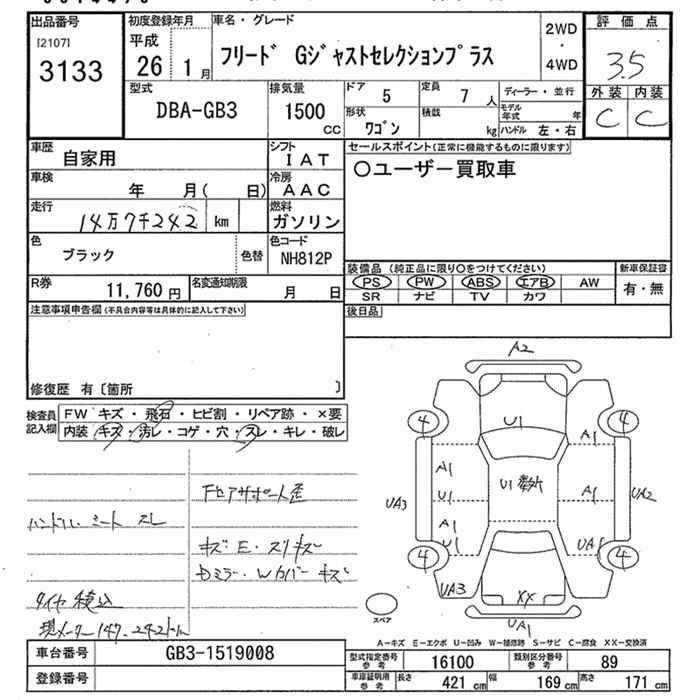 出品番号
[2107]
3133
初度登録年月
平成
26 1月
車名・グレード
フリード Gジャストセレクションプラス
2WD
・
4WD
評価点
3.5
外装 内装
C C
型式
DBA-GB3
排気量
1500
cc
ドア 5
定員 7 人
形状 ワゴン
積載 kg
ディーラー・並行
モデル年式 年
ハンドル 左・右
車歴 自家用
シフト IAT
車検 年 月( 日)
冷房 AAC
走行 14万7千242 km
燃料 ガソリン
色 ブラック 色替
色コード NH812P
R券 11,760 円
名変通知期限 月 日
セールスポイント(正常に機能するものに限ります)
○ユーザー買取車
装備品 (純正品に限り○をつけてください)
新車保証書
PS PW ABS エアB AW
有・無
SR ナビ TV カワ
後日品
注意事項申告欄(不具合内容等は具体的に記入して下さい)
修復歴 有〔箇所 〕
検査員記入欄
FW キズ・飛石・ヒビ割・リペア跡・×要
内装 キズ・汚レ・コゲ・穴・スレ・キレ・破レ
ハンドル シート スレ
キズ・E・スリキズ
ドミラー・Wカバー キズ
タイヤ積込
現メーター147,242km
A2
4 4
U1
A1
A1
U1
U1
A1
UA3
UA2
A1
U1
UA1
4 4
UA3
XX
UA1
スペア
A-キズ E-エクボ U-凹み W-補修跡 S-サビ C-腐食 XX-交換済
車台番号 GB3-1519008
登録番号
型式指定番号参考 16100
類別区分番号参考 89
車庫証明用参考 長さ 421 cm 幅 169 cm 高さ 171 cm